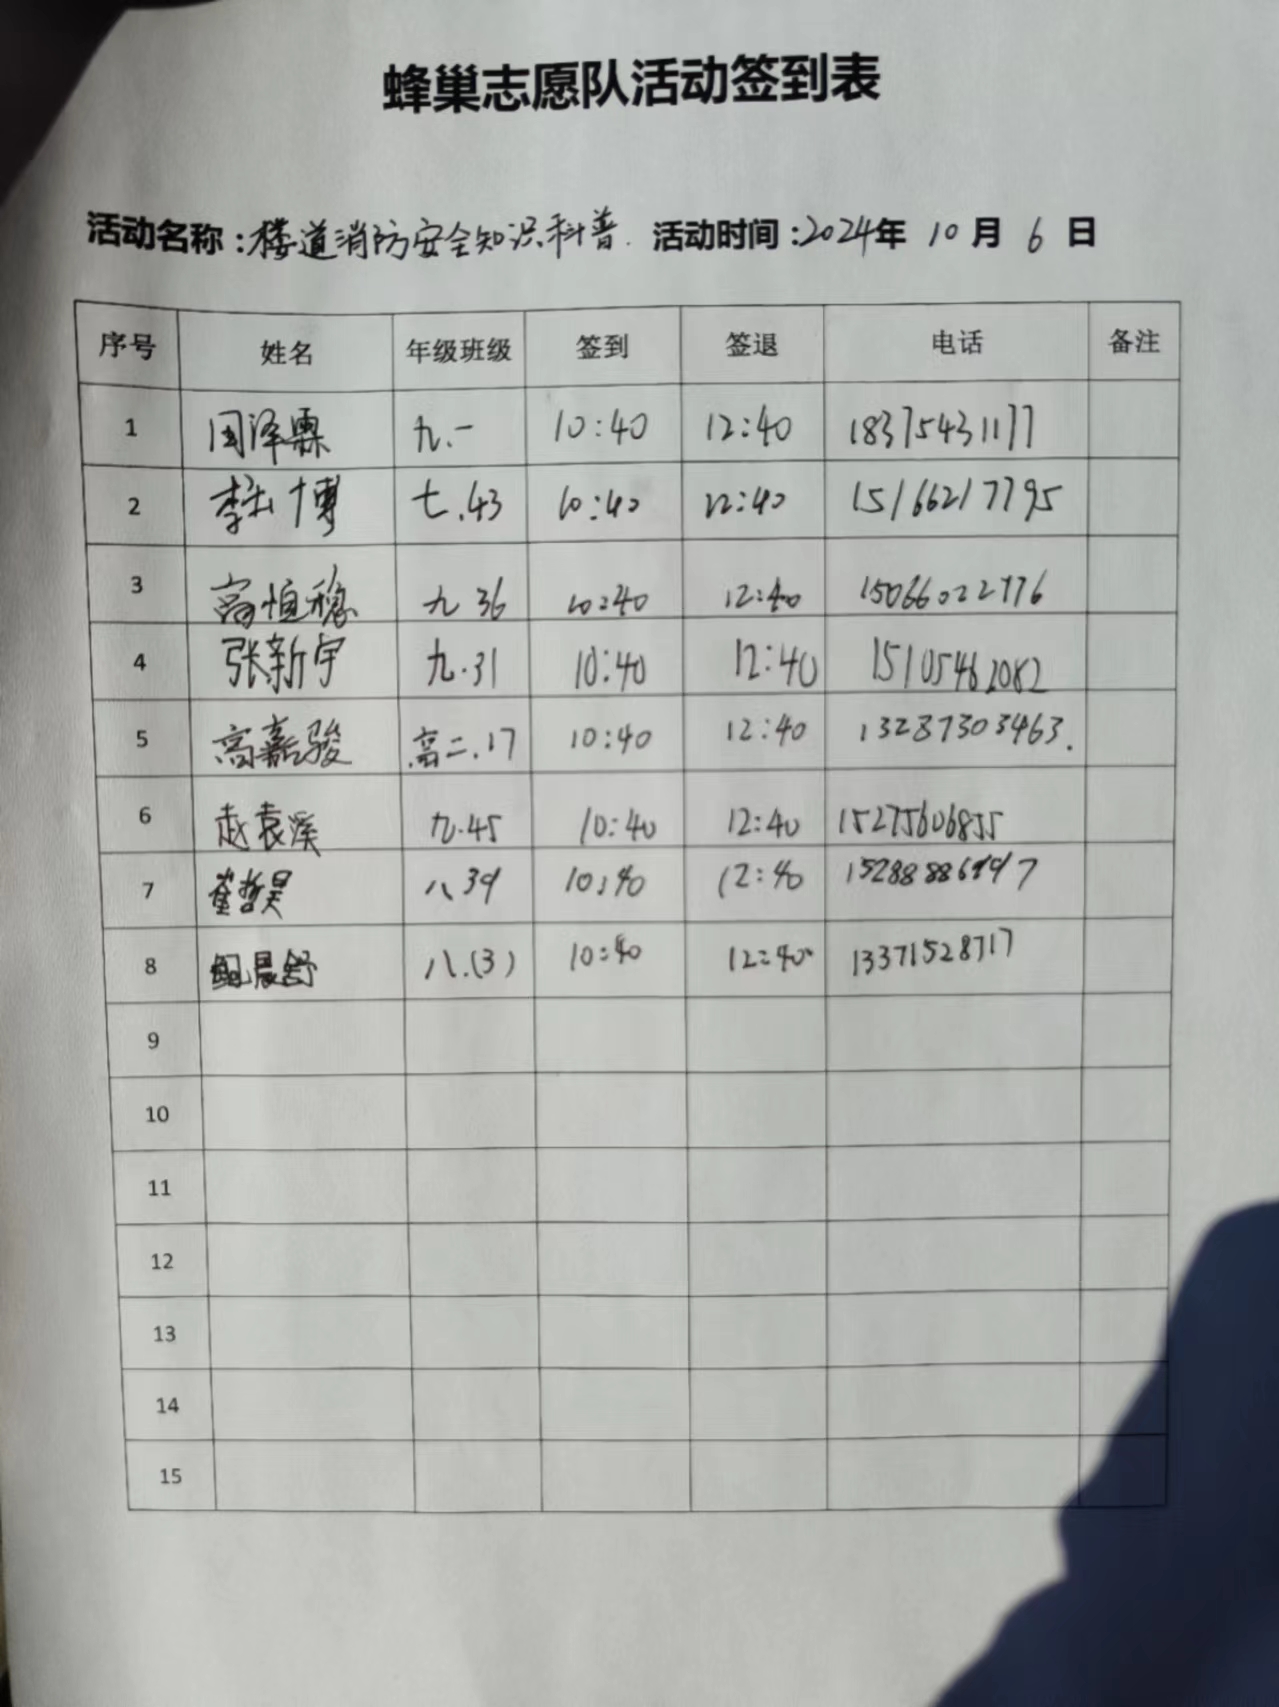 蜂巢志愿队活动签到表
活动名称:楼道消防安全知识科普. 活动时间:2024年 10 月 6 日
序号 姓名 年级班级 签到 签退 电话 备注
1 周泽霖 九.一 10:40 12:40 18375431177
2 李 博 七.43 10:40 12:40 15166217795
3 高恒稳 九 36 10:40 12:40 15066022776
4 张新宇 九.31 10:40 12:40 15105462082
5 高嘉骏 高二.17 10:40 12:40 13287303463.
6 赵袁溪 九.45 10:40 12:40 15275606855
7 崔哲昊 八 39 10:40 12:40
8 晨舒 八.(3) 10:40 12:40 13371528717
9
10
11
12
13
14
15